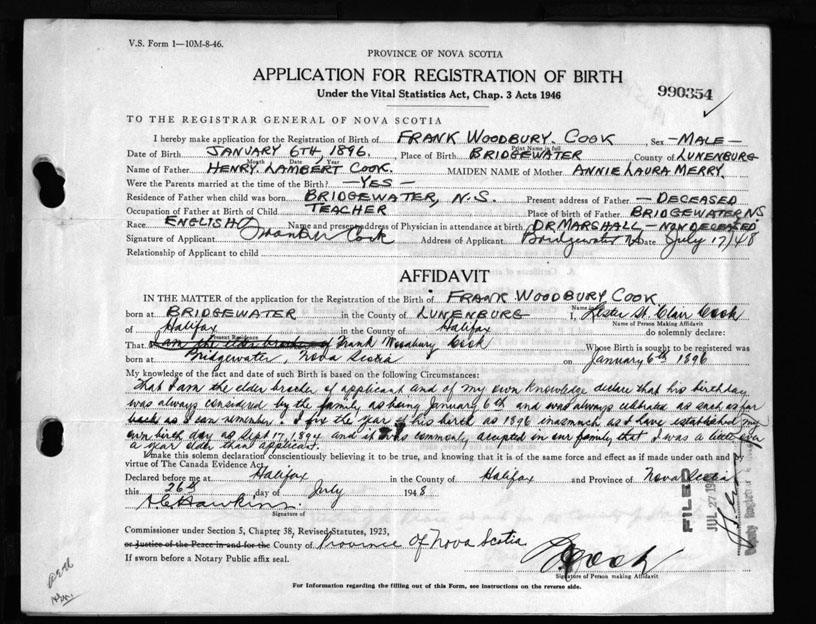 V.S. Form 1—10M-8-46.
PROVINCE OF NOVA SCOTIA
APPLICATION FOR REGISTRATION OF BIRTH
Under the Vital Statistics Act, Chap. 3 Acts 1946
990354
TO THE REGISTRAR GENERAL OF NOVA SCOTIA
I hereby make application for the Registration of Birth of FRANK WOODBURY. COOK, Sex —MALE—
Print Name in full
Date of Birth JANUARY 6TH, 1896. Place of Birth BRIDGEWATER County of LUNENBURG
Month Date Year
Name of Father HENRY LAMBERT COOK. MAIDEN NAME of Mother ANNIE LAURA MERRY.
Were the Parents married at the time of the Birth? —YES—
Residence of Father when child was born BRIDGEWATER, N.S. Present address of Father — DECEASED
Occupation of Father at Birth of Child TEACHER Place of birth of Father BRIDGEWATER N.S.
Race ENGLISH Name and present address of Physician in attendance at birth DR MARSHALL — NOW DECEASED
Signature of Applicant Cook Address of Applicant Bridgewater NS Date July 17/48
Relationship of Applicant to child
AFFIDAVIT
IN THE MATTER of the application for the Registration of the Birth of FRANK WOODBURY COOK.
Name in full
born at BRIDGEWATER in the County of LUNENBURG I, Lester St. Clair Cook
Name of Person Making Affidavit
of Halifax in the County of Halifax do solemnly declare:
Present Residence
That I am the elder brother of Frank Woodbury Cook Whose Birth is sought to be registered was
born at Bridgewater, Nova Scotia on January 6th 1896
My knowledge of the fact and date of such Birth is based on the following Circumstances:
that I am the elder brother of applicant and of my own knowledge declare that his birthday
was always considered by the family as being January 6th and was always celebrated as such as far
back as I can remember. I fix the year of his birth as 1896 inasmuch as I have established my
own birth day as Sept 17, 1894 and it was commonly accepted in our family that I was a little over
a year older than applicant.
I make this solemn declaration conscientiously believing it to be true, and knowing that it is of the same force and effect as if made under oath and by
virtue of The Canada Evidence Act.
Declared before me at Halifax in the County of Halifax and Province of Nova Scotia
this 26th day of July 1948
Signature of
FILED
JUL 27 19
Commissioner under Section 5, Chapter 38, Revised Statutes, 1923,
or Justice of the Peace in and for the County of Province of Nova Scotia
If sworn before a Notary Public affix seal.
Cook
Signature of Person making Affidavit
For Information regarding the filling out of this Form, see instructions on the reverse side.